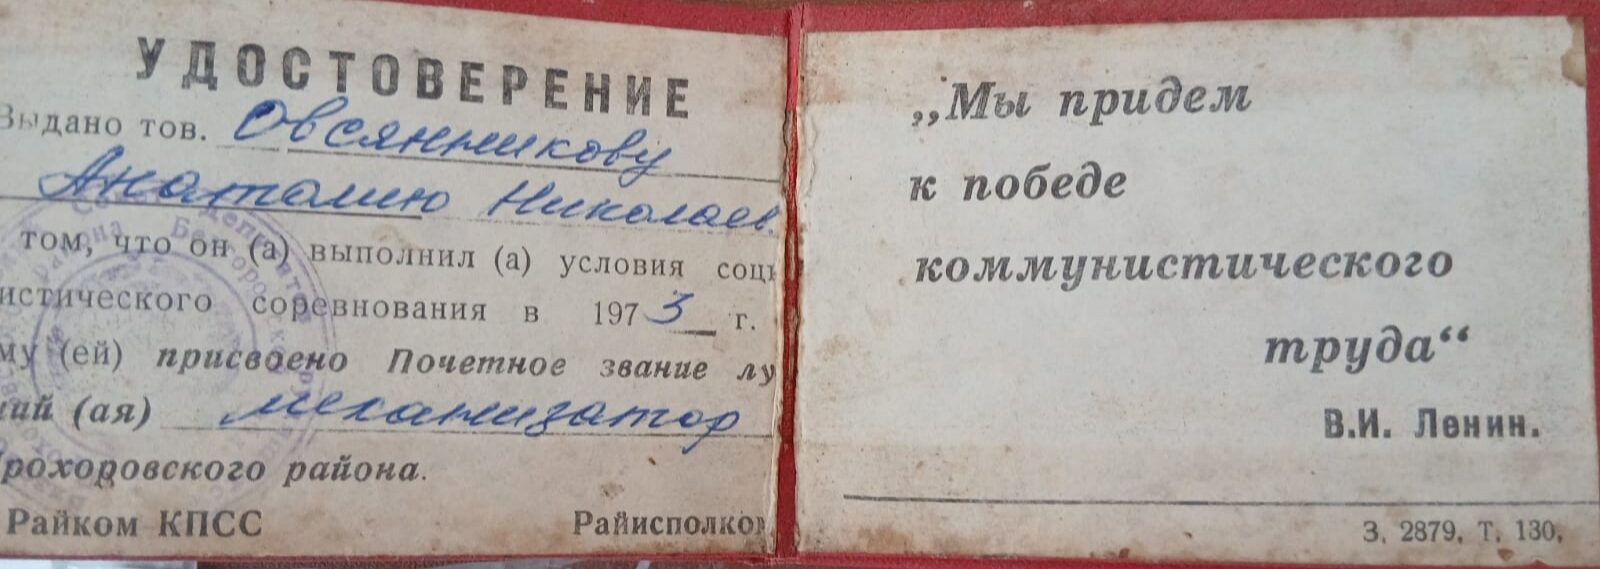 УДОСТОВЕРЕНИЕ
Выдано тов. Овсянникову
Анатолию Николаев.
том, что он (а) выполнил (а) условия соци
истического соревнования в 1973 г.
му (ей) присвоено Почетное звание лу
ий (ая) механизатор
Прохоровского района.
Райком КПСС Райисполком
„Мы придем
к победе
коммунистического
труда“
В.И. Ленин.
З. 2879. Т. 130.